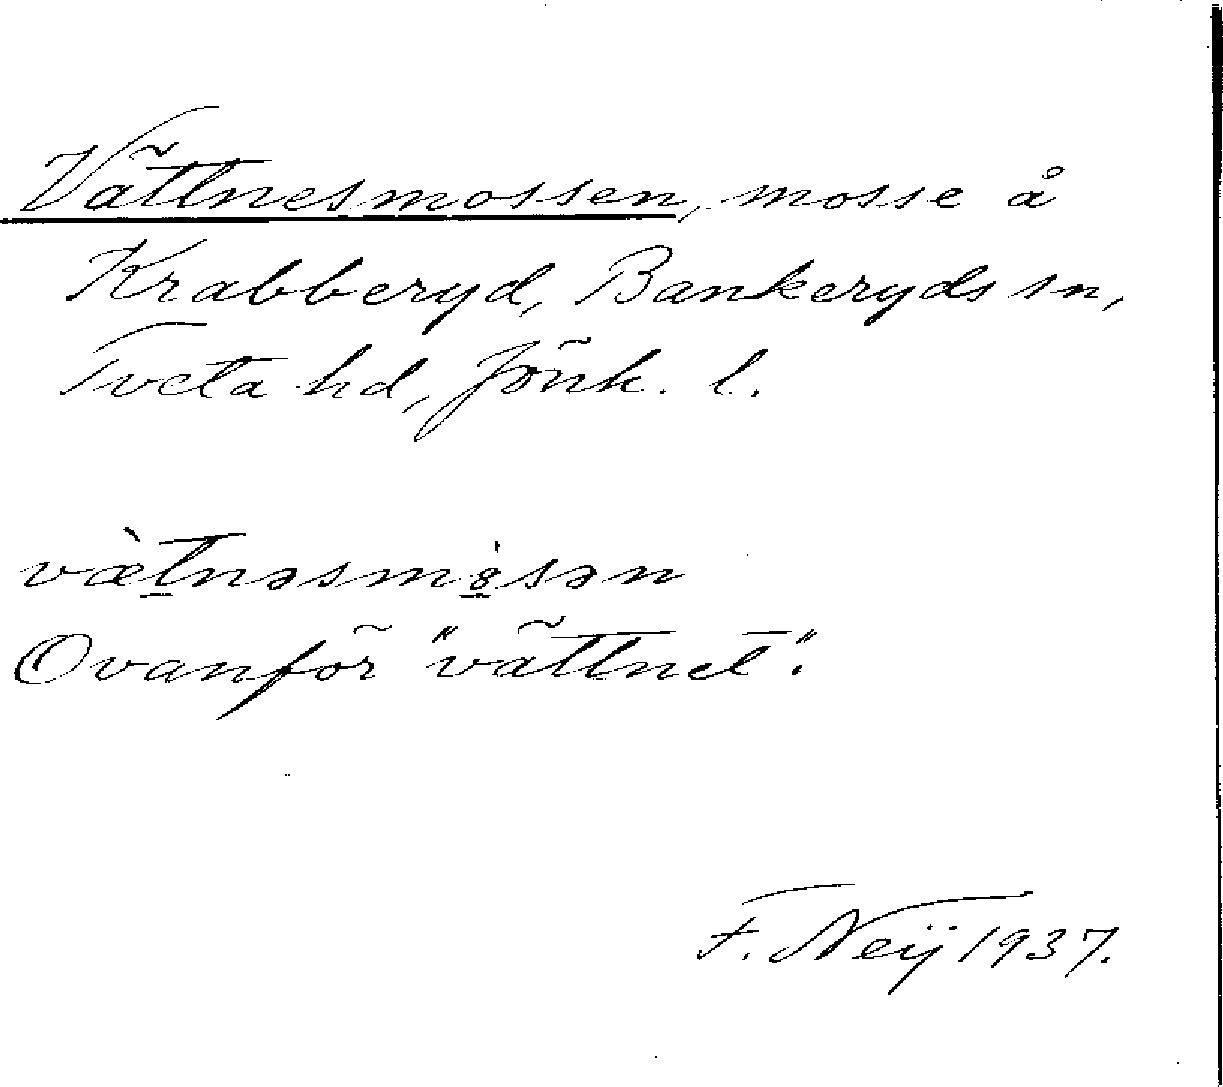 Vättnesmossen, mosse å
Krabberyd, Bankeryds sn,
Tveta hd, Jönk. l.
væ̀t̠nəsmø̠̀sən
Ovanför "vättnet".
F. Neij 1937.